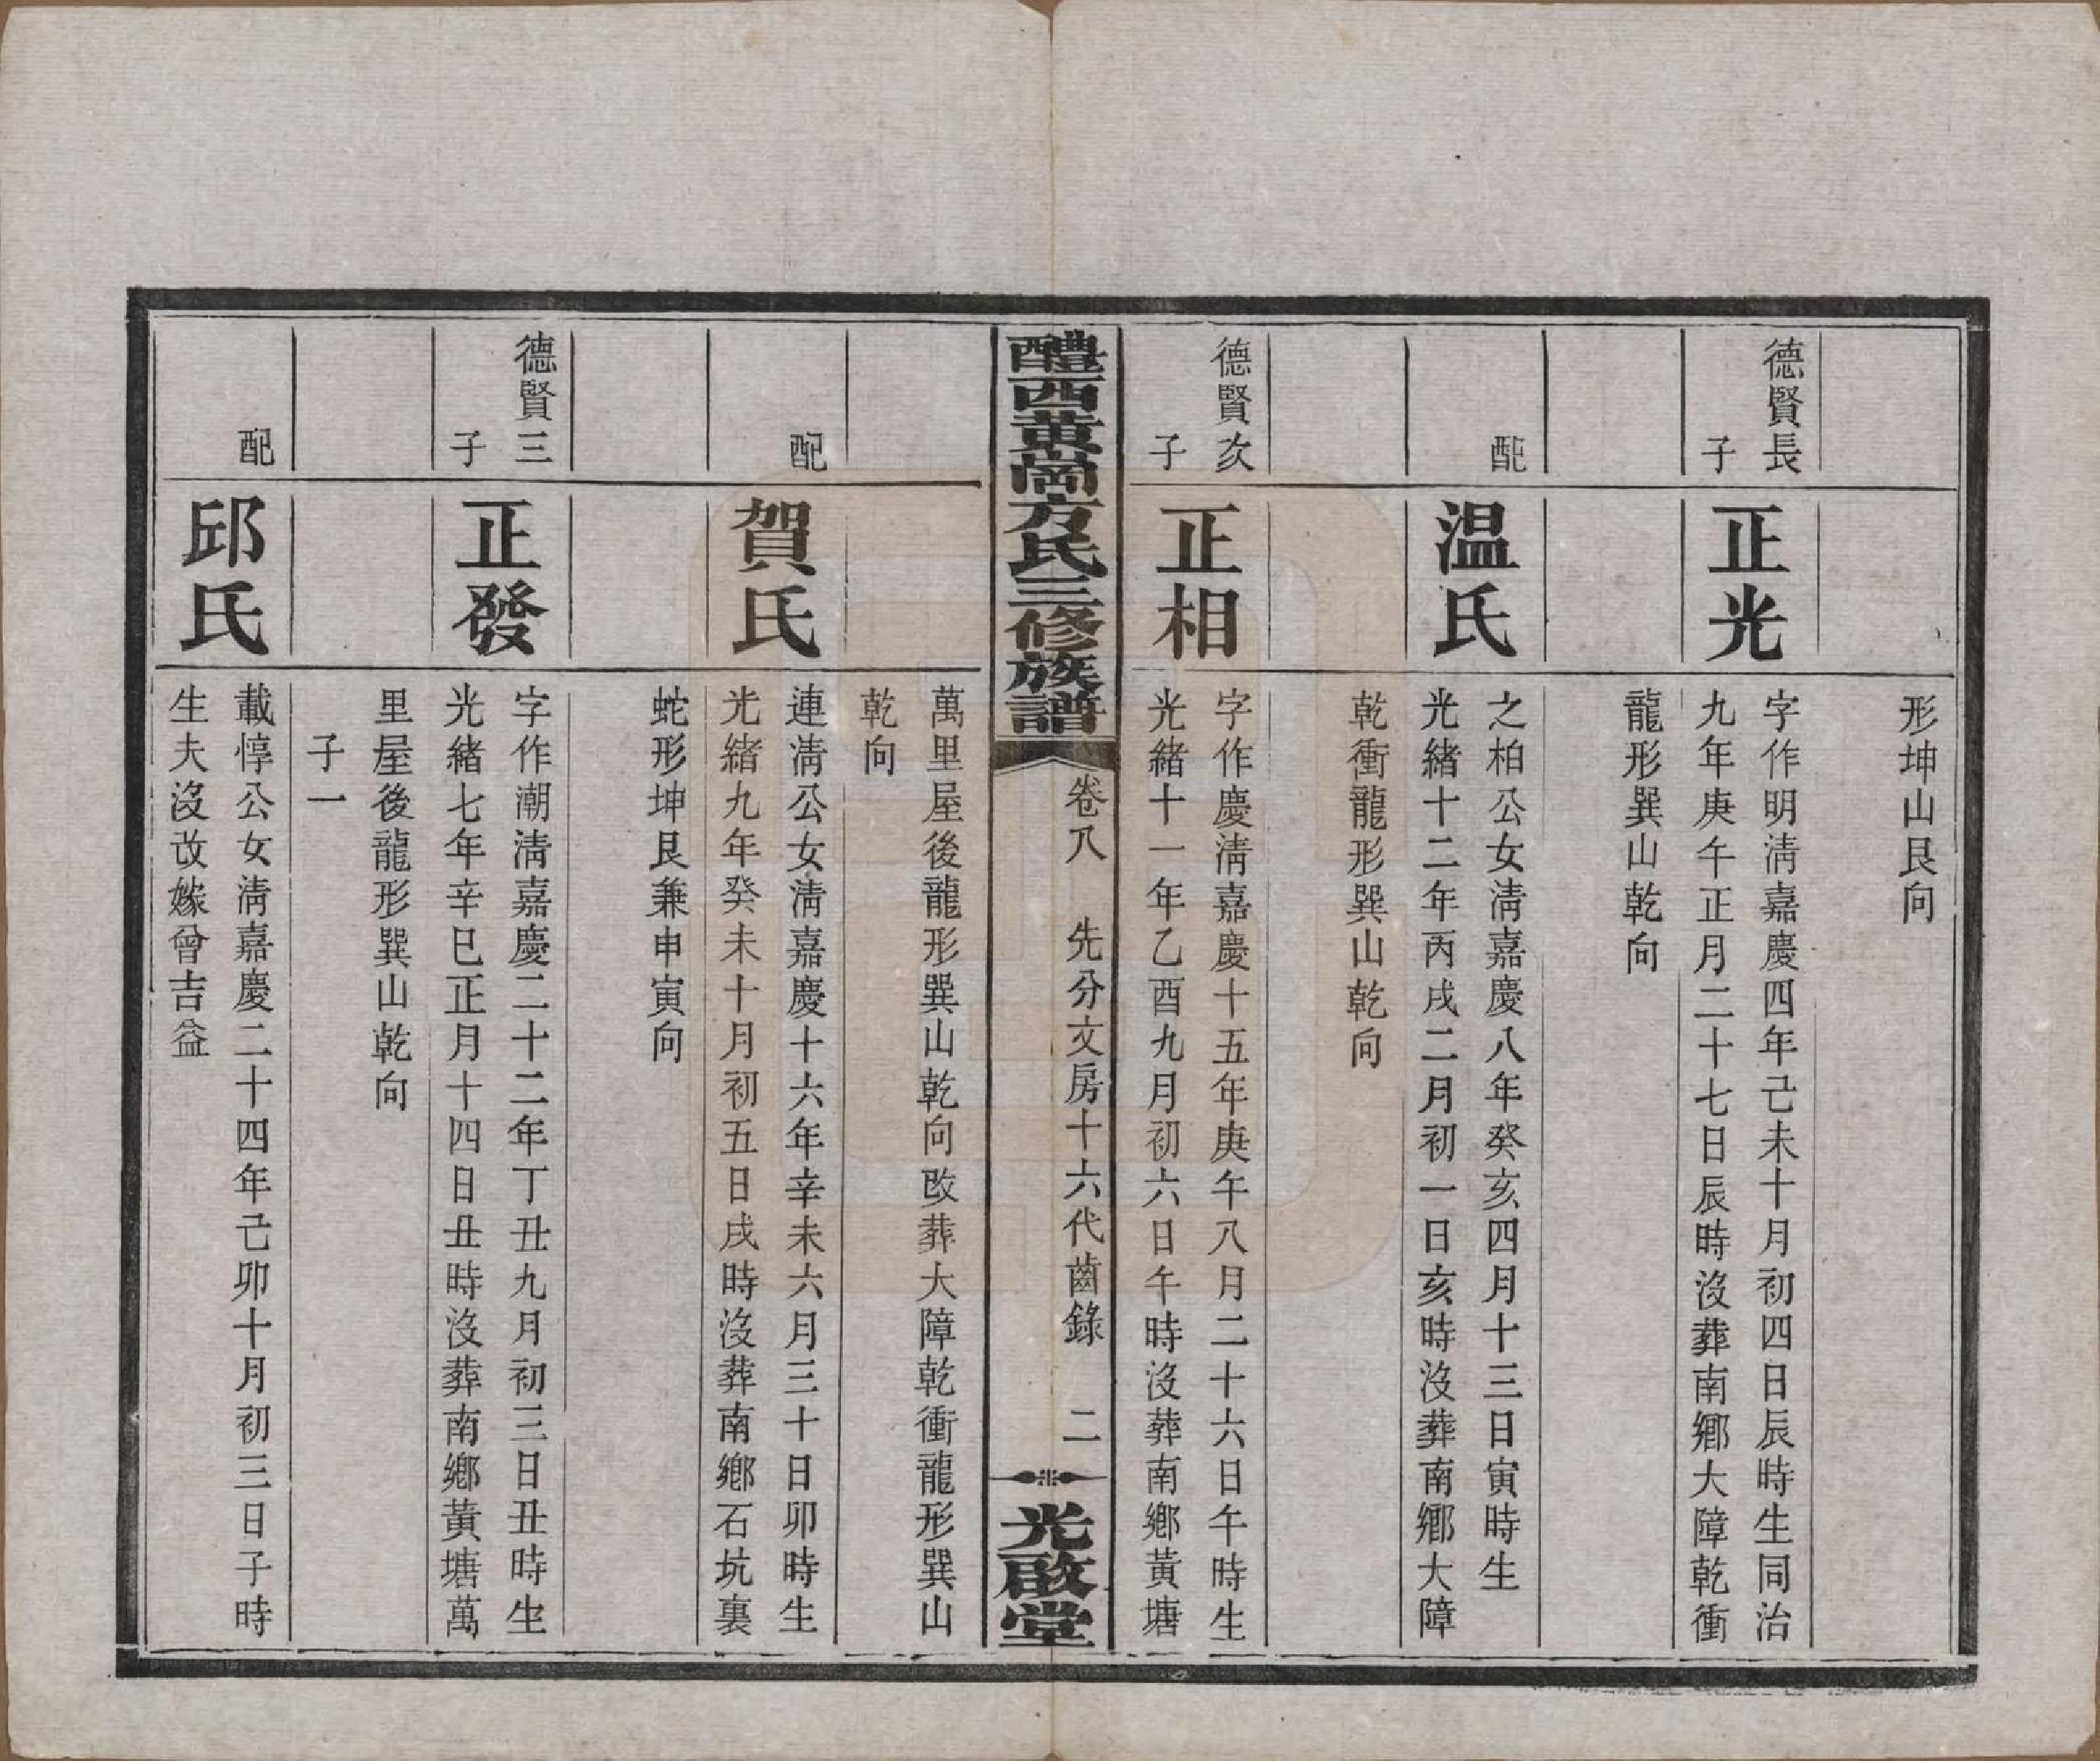 形坤山艮向
德賢長
子
正光
字作明淸嘉慶四年己未十月初四日辰時生同治
九年庚午正月二十七日辰時沒葬南鄉大障乾衝
龍形巽山乾向
配
温氏
之柏公女淸嘉慶八年癸亥四月十三日寅時生
光緒十二年丙戌二月初一日亥時沒葬南鄉大障
乾衝龍形巽山乾向
德賢次
子
正相
字作慶淸嘉慶十五年庚午八月二十六日午時生
光緒十一年乙酉九月初六日午時沒葬南鄉黃塘
醴西黃崗方氏三修族譜
卷八 先分文房十六代齒錄 二
光啟堂
萬里屋後龍形巽山乾向改葬大障乾衝龍形巽山
乾向
配
賀氏
連淸公女淸嘉慶十六年辛未六月三十日卯時生
光緒九年癸未十月初五日戌時沒葬南鄉石坑裏
蛇形坤艮兼申寅向
德賢三
子
正發
字作潮淸嘉慶二十二年丁丑九月初三日丑時生
光緒七年辛巳正月十四日丑時沒葬南鄉黃塘萬
里屋後龍形巽山乾向
子一
配
邱氏
載惇公女淸嘉慶二十四年己卯十月初三日子時
生夫沒改嫁曾吉益